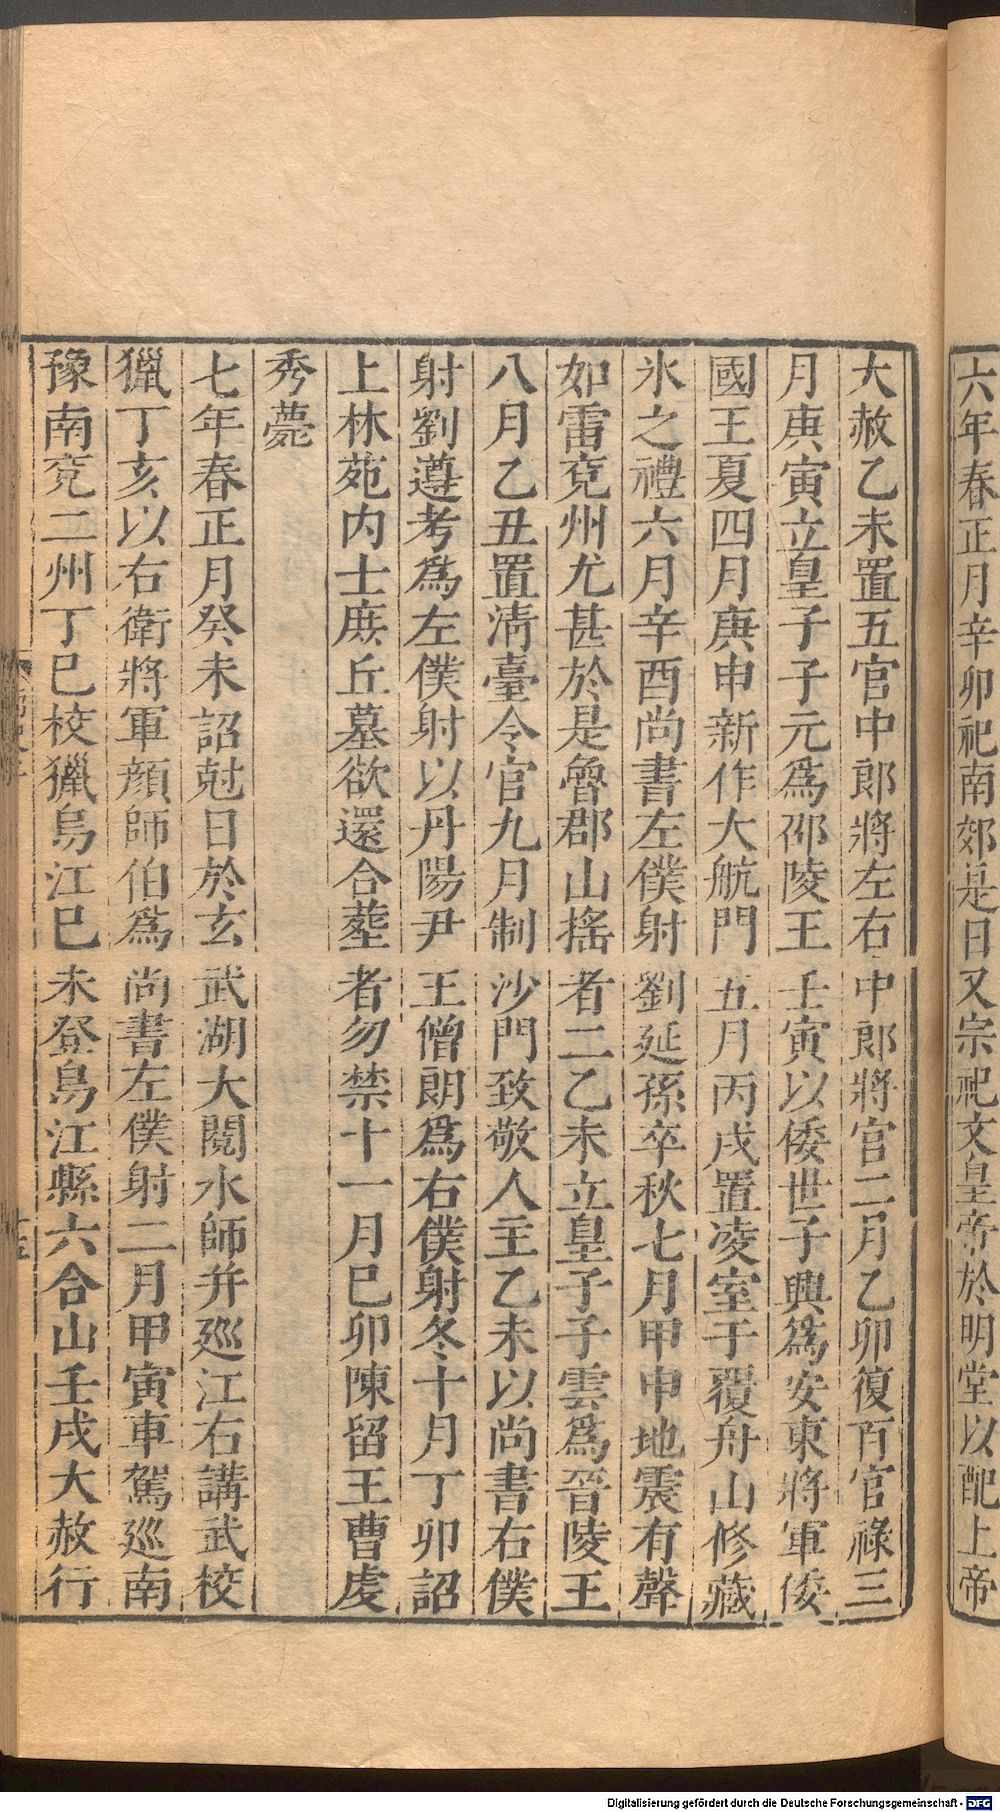 六年春正月辛卯祀南郊是日又宗祀文皇帝於明堂以配上帝
大赦乙未置五官中郎將左右中郎將官二月乙卯復百官祿三
月庚寅立皇子子元爲邵陵王壬寅以倭世子興爲安東將軍倭
國王夏四月庚申新作大航門五月丙戌置凌室于覆舟山修藏
氷之禮六月辛酉尚書左僕射劉延孫卒秋七月甲申地震有聲
如雷兖州尤甚於是魯郡山搖者二乙未立皇子子雲爲晉陵王
八月乙丑置淸臺令官九月制沙門致敬人主乙未以尚書右僕
射劉遵考爲左僕射以丹陽尹王僧朗爲右僕射冬十月丁卯詔
上林苑内士庶丘墓欲還合葬者勿禁十一月巳卯陳留王曹虔
秀薨
七年春正月癸未詔尅日於玄武湖大閱水師并廵江右講武校
獵丁亥以右衛將軍顔師伯爲尚書左僕射二月甲寅車駕廵南
豫南兖二州丁巳校獵烏江巳未登烏江縣六合山壬戌大赦行
十五
Digitalisierung gefördert durch die Deutsche Forschungsgemeinschaft - DFG